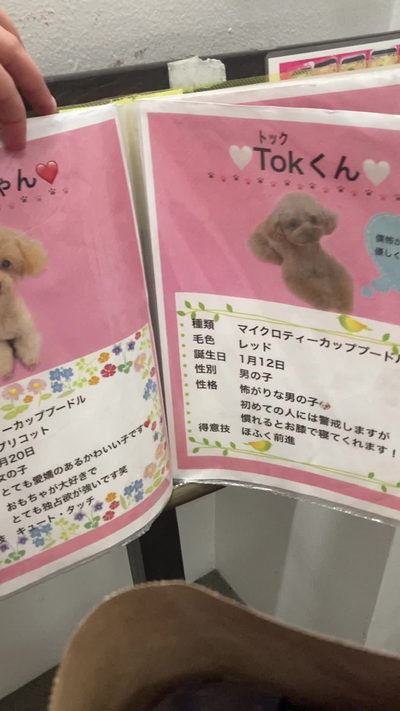 ゃん❤
ーカッププードル
プリコット
月20日
女の子
とても愛嬌のあるかわいい子です❤
おもちゃが大好きで
とても独占欲が強いです笑
技 キュート・タッチ
トック
🤍Tokくん🤍
僕怖が
優しく
種類 マイクロティーカッププードル
毛色 レッド
誕生日 1月12日
性別 男の子
性格 怖がりな男の子🐶
初めての人には警戒しますが
慣れるとお膝で寝てくれます！
得意技 ほふく前進